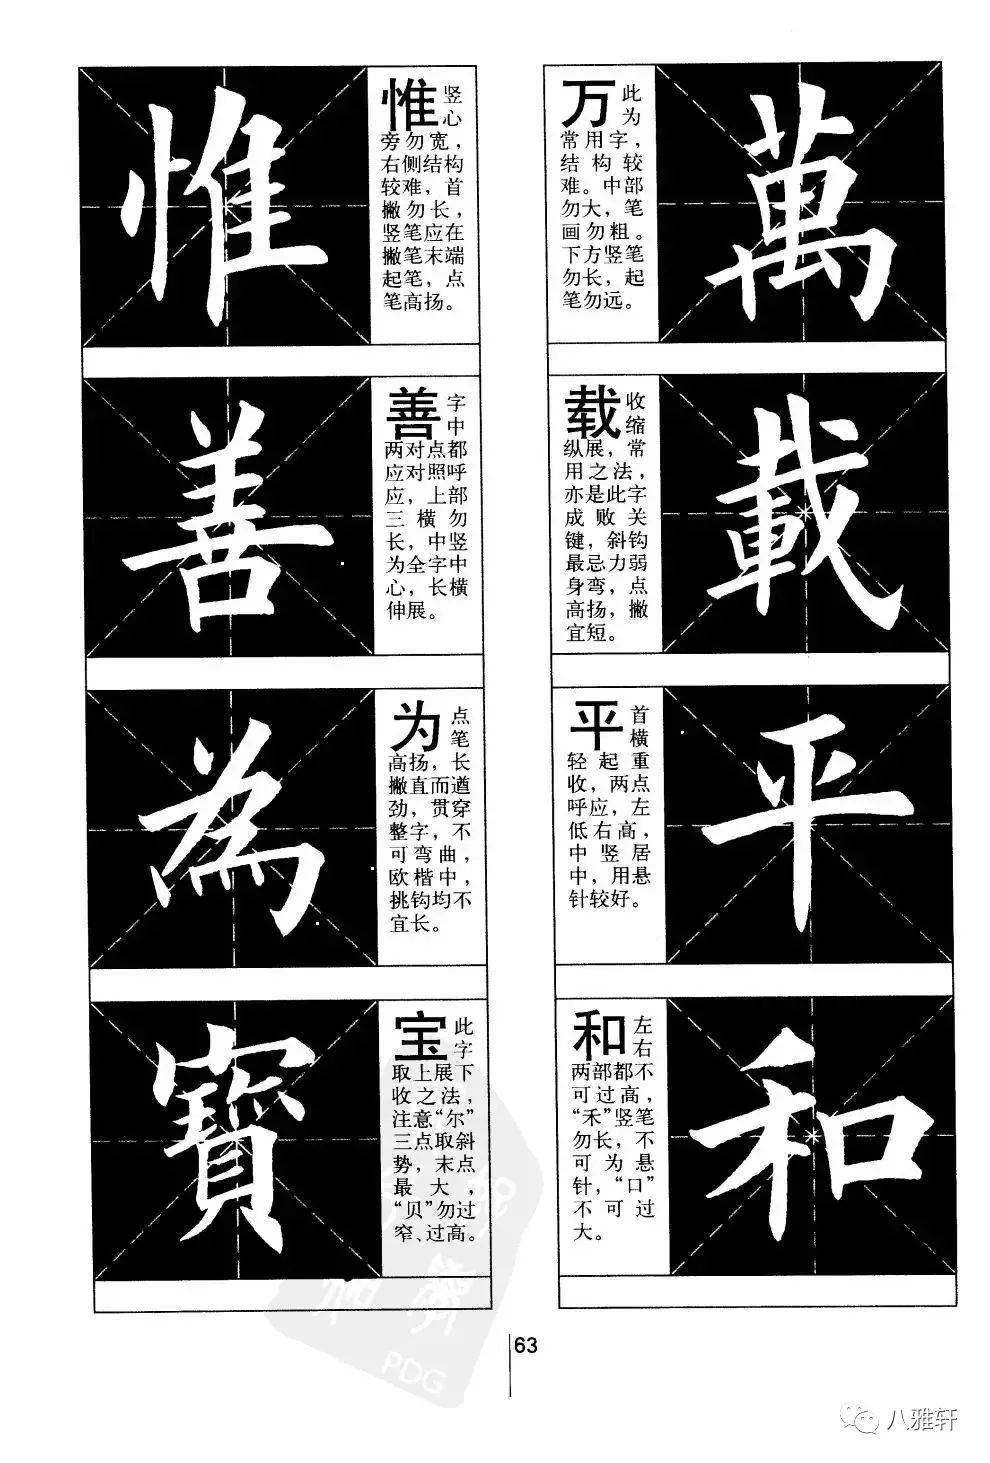 惟
惟 竖
心
旁勿宽，
右侧结构
较难，首
撇勿长，
竖笔应在
撇笔末端
起笔，点
笔高扬。
善
善 字
中
两对点都
应对照呼
应，上部
三横勿
长，中竖
为全字中
心，长横
伸展。
為
为 点
笔
高扬，长
撇直而遒
劲，贯穿
整字，不
可弯曲，
欧楷中，
挑钩均不
宜长。
寶
宝 此
字
取上展下
收之法，
注意“尔”
三点取斜
势，末点
最大，
“贝”勿过
窄、过高。
万 此
为
常用字，
结构较
难。中部
勿大，笔
画勿粗。
下方竖笔
勿长，起
笔勿远。
萬
载 收
缩
纵展，常
用之法，
亦是此字
成败关
键，斜钩
最忌力弱
身弯，点
高扬，撇
宜短。
載
平 首
横
轻起重
收，两点
呼应，左
低右高，
中竖居
中，用悬
针较好。
平
和 左
右
两部都不
可过高，
“禾”竖笔
勿长，不
可为悬
针，“口”
不可过
大。
和
63
PDG
八雅轩